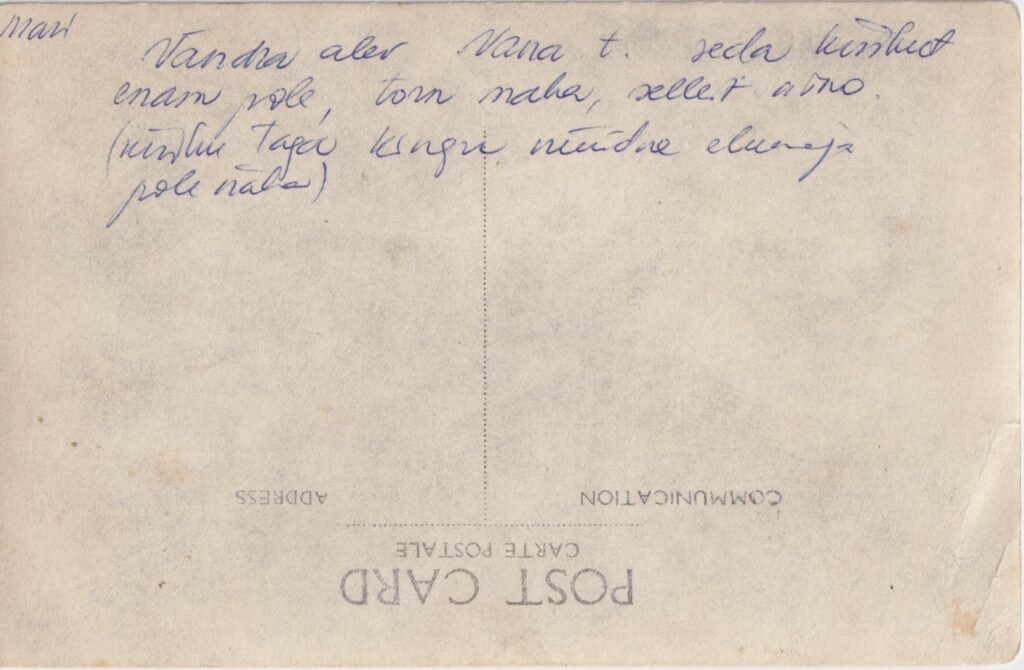 Mari
Vandra alev Vana t. seda kirikut
enam pole, torn naha,
taga kingu nüüdne elumaja
pole näha)
ADDRESS
COMMUNICATION
CARTE POSTALE
POST CARD